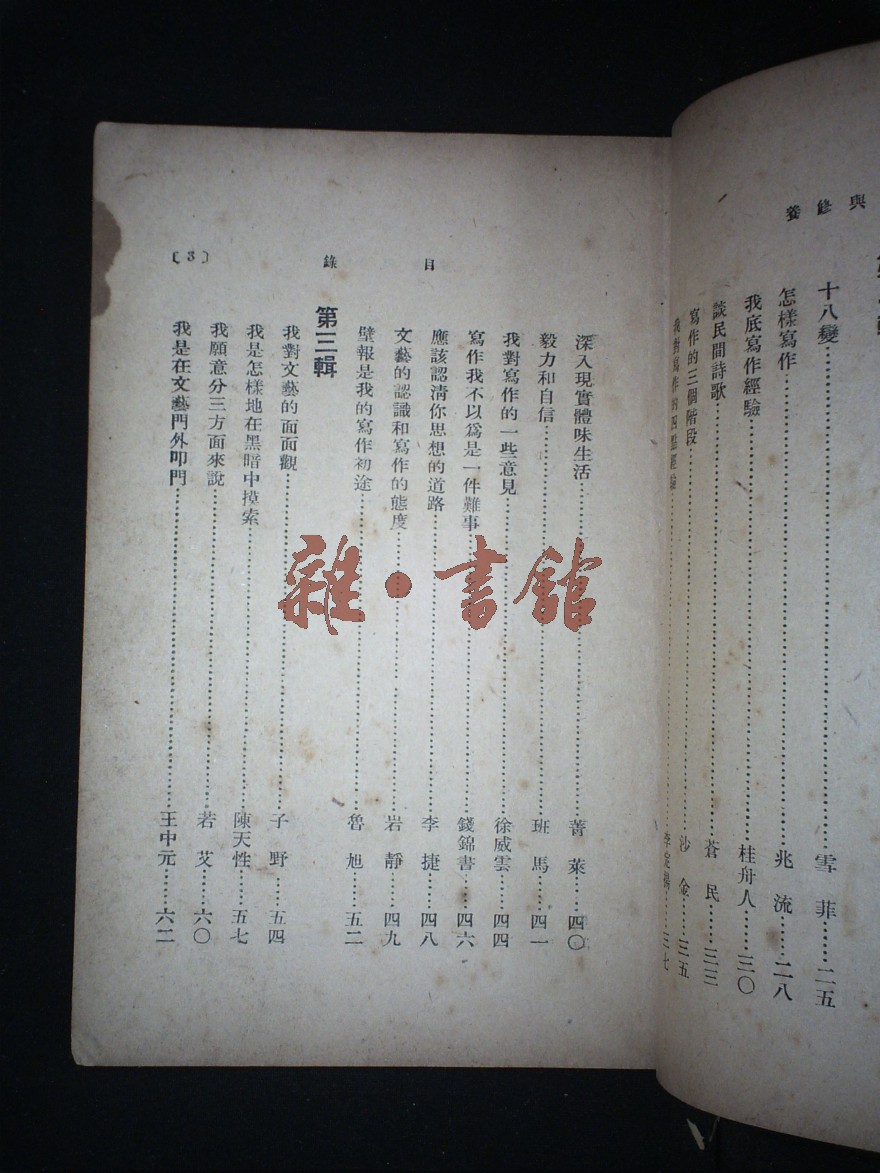 與修養
十八變……雪菲……二五
怎樣寫作……兆流……二八
我底寫作經驗……桂舟人……三〇
談民間詩歌……蒼民……三三
寫作的三個階段……沙金……三五
我對寫作的四點經驗……三七
目錄
〔3〕
深入現實體味生活……菁萊……四〇
毅力和自信……班馬……四一
我對寫作的一些意見……徐威雲……四四
寫作我不以爲是一件難事……錢錦書……四六
應該認淸你思想的道路……李捷……四八
文藝的認識和寫作的態度……岩靜……四九
壁報是我的寫作初途……魯旭……五二
第三輯
我對文藝的面面觀……子野……五四
我是怎樣地在黑暗中摸索……陳天性……五七
我願意分三方面來說……若艾……六〇
我是在文藝門外叩門……王中元……六二
雜·書館